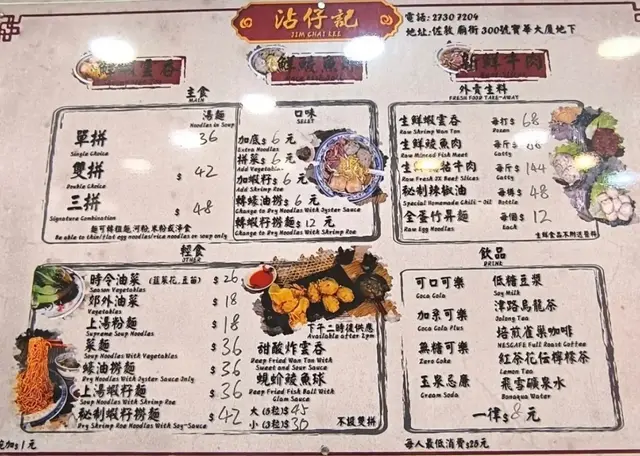 沾仔記
JIM CHAI KEE
電話: 2730 7204
地址: 佐敦 廟街 300號寶華大厦地下
新鮮牛肉
主食
MAIN
湯麵
Noodles in Soup
單拼 36
Single Choice
雙拼 $ 42
Double Choice
三拼 $ 48
Signature Combination
麵可轉粗麵,河粉,米粉或淨食
Be able to thin/flat egg noodles/rice noodles or soup only
口味
SELET
加底 $ 6 元
Extra Noodles
拼菜 $ 6 元
Add Vegetables
加蝦籽 $ 6 元
Add Shrimp Roe
轉蠔油撈 $ 6 元
Change to Dry Noodles With Oyster Sauce
轉蝦籽撈 $ 12 元
Change to Dry Noodles With Shrimp Roe
外賣生料
FRESH FOOD TAKE-AWAY
生鮮蝦雲吞 每打 $ 68
Raw Shrimp Won Ton Dozen
生鮮鯪魚肉 每斤 $
Raw Minced Fish Meat Catty
牛肉 每斤 $ 144
Raw Fresh OX Beef Slices Catty
秘制辣椒油 每樽 $ 48
Special Homemade Chili - Oil Bottle
全蛋竹昇麵 每個 $ 12
Raw Egg Noodles Each
生鮮食品不附送醬料
輕食
OTHER
時令油菜 (韮菜花,豆苗) $ 26
Season Vegetables
郊外油菜 $ 18
Vegetables
上湯粉麵 $ 18
Supreme Soup Noodles
菜麵 $ 36
Soup Noodles With Vegetables
蠔油撈麵 $ 36
Dry Noodles With Oyster Sauce Only
上湯蝦籽麵 $ 36
Soup Noodles With Shrimp Roe
秘制蝦籽撈麵 $ 42
Dry Shrimp Roe Noodles With Soy-Sauce
下午二時後供應
Available after 2pm
甜酸炸雲吞
Deep Fried Won Ton With
Sweet and Sour Sauce
蜆蚧鯪魚球
Deep Fried Fish Ball With
Clam Sauce
大 (8粒) $ 45
小 (5粒) $ 30
不設雙拼
飲品
DRINK
可口可樂
Coca Cola
加系可樂
Coca Cola Plus
無糖可樂
Zero Coke
玉泉忌廉
Cream Soda
低糖豆漿
Soy Milk
津路烏龍茶
Oolong Tea
焙煎雀巢咖啡
NESCAFE Full Roast Coffee
紅茶花伝檸檬茶
Lemon Tea
飛雪礦泉水
Bonaqua Water
一律 $ 8 元
加 $ 1 元
每人最低消費$25元